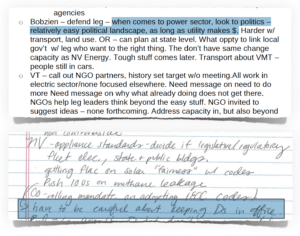 agencies
o Bobzien – defend leg – when comes to power sector, look to politics –
relatively easy political landscape, as long as utility makes $. Harder w/
transport, land use. OR – can plan at state level. What oppty to link local
gov't w/ leg who want to the right thing. The don't have same change
capacity as NV Energy. Tough stuff comes later. Transport about VMT –
people still in cars.
o VT – call out NGO partners, history set target w/o meeting. All work in
electric sector/none focused elsewhere. Need message on need to do
more Need message on why what already doing does not get there.
NGOs help leg leaders think beyond the easy stuff. NGO invited to
suggest ideas – none forthcoming. Address capacity in, but also beyond
NV - appliance standards - divide if legislative/regulatory
fleet elec., state + public bldgs.
getting Plac on solar "fairness" w/ codes
Push 100s on methane leakage
(Co - rolling mandate on adopting IECC codes)
have to be careful about keeping Ds in office